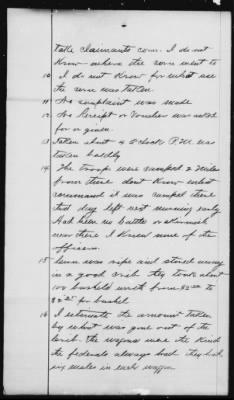 take claimants corn. I do not
know where the corn went to
10 I do not know for what use
the corn was taken.
11 No complaint was made
12 No Receipt or Voucher was asked
for or given
13 Taken about 4 5 clock P.M. was
taken boldly
14 The troops were camped 2 miles
from there dont know what
command it was camped there
that day left next morning early
Had been no battle or skirmish
was there I knew none of the
officers.
15 Corn was ripe and stored away
in a good crib they took about
100 bushels worth from $2.00 to
$2.25 per bushel
16 I estimate the amount taken
by what was gone out of the
crib. the wagons were the kind
the federals always had they had
six mules in each wagon